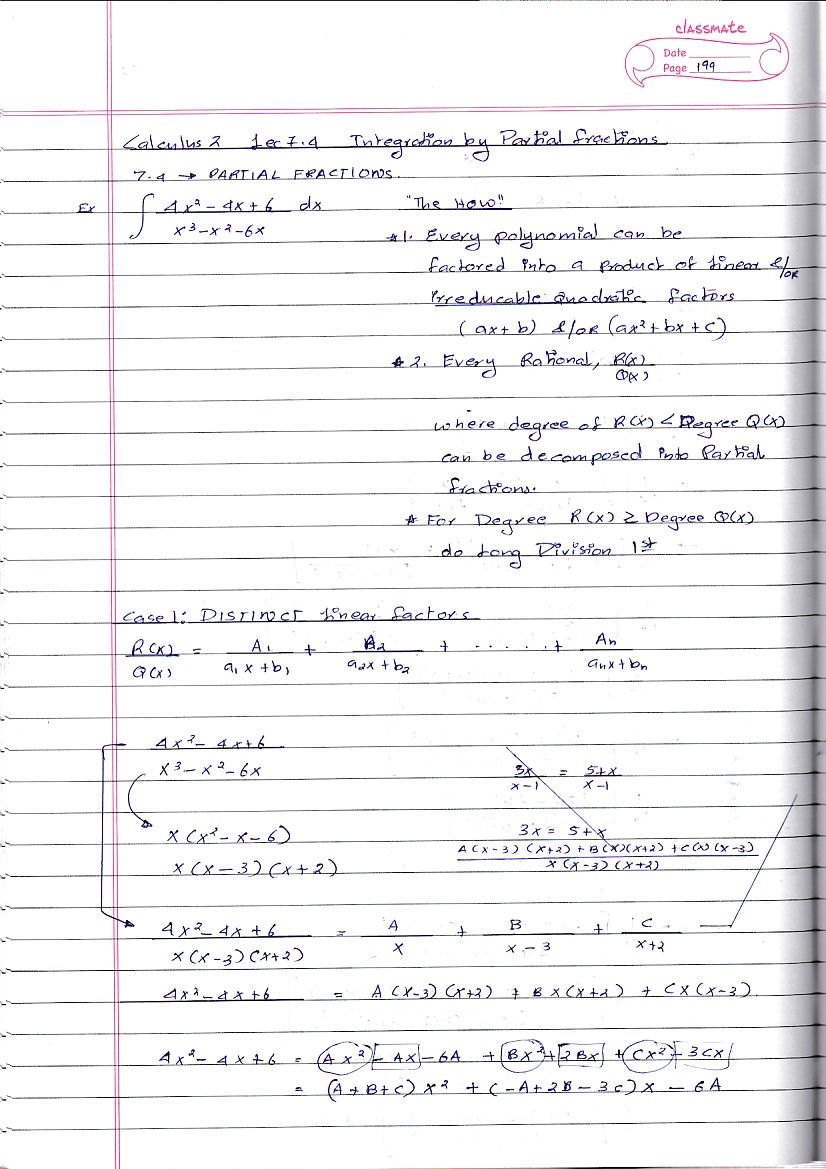 classmate
Date
Page 199
Calculus 2 Lec 7.4 Integration by Partial fractions
7.4 → PARTIAL FRACTIONS.
Ex ∫ 4x² - 4x + 6 dx
x³ - x² - 6x
"The How"
*1. Every polynomial can be
factored into a product of linear &/OR
irreducable quadratic factors
(ax + b) &/OR (ax² + bx + c)
*2. Every Rational, R(x)
Q(x)
where degree of R(x) < Degree Q(x)
can be decomposed into Partial
fractions.
* For Degree R(x) ≥ Degree Q(x)
do Long Division 1st
Case 1: DISTINCT linear factors
R(x) = A₁ + A₂ + ...... + Aₙ
Q(x) a₁x + b₁ a₂x + b₂ aₙx + bₙ
4x² - 4x + 6
x³ - x² - 6x
x(x² - x - 6)
x(x - 3)(x + 2)
3x = 5+x
x-1 x-1
3x = 5+x
A(x-3)(x+2) + B(x)(x+2) + C(x)(x-3)
x(x-3)(x+2)
4x² - 4x + 6 = A + B + C
x(x-3)(x+2) x x - 3 x+2
4x² - 4x + 6 = A(x-3)(x+2) + Bx(x+2) + Cx(x-3)
4x² - 4x + 6 = Ax² - Ax - 6A + Bx² + 2Bx + Cx² - 3Cx
= (A+B+C)x² + (-A+2B-3c)x - 6A